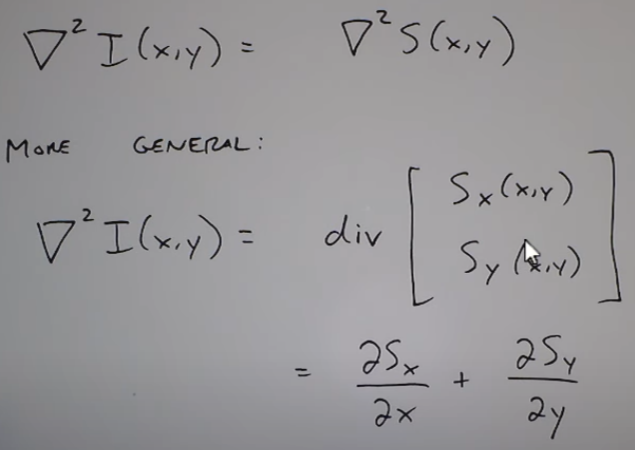 ∇² I(x,y) = ∇² S(x,y)
MORE GENERAL:
∇² I(x,y) = div [ Sₓ(x,y)
S_y(x,y) ]
= ∂Sₓ/∂x + ∂S_y/∂y